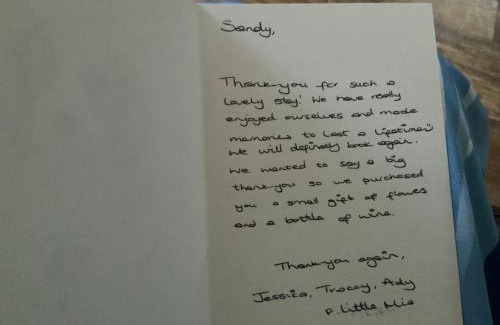 Sandy,
Thank-you for such a
lovely stay! We have really
enjoyed ourselves and made
memories to last a lifetime
We will definatly book again.
We wanted to say a big
thank-you so we purchased
you a small gift of flowers
and a bottle of wine.
Thank-you again,
Jessica, Tracey, Ady
Little Mia